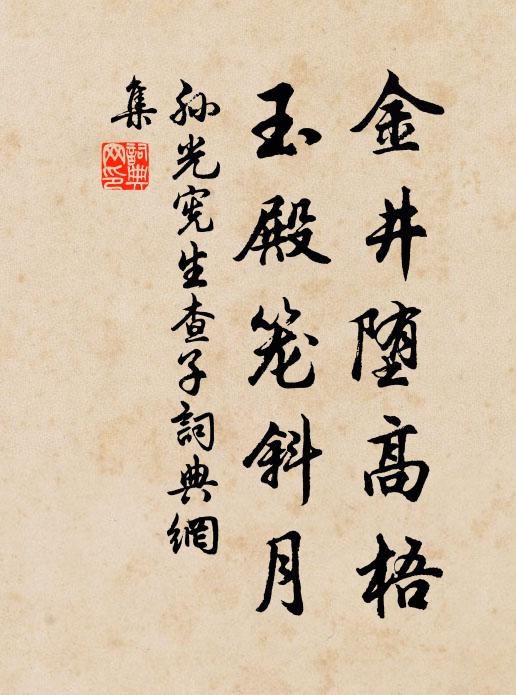 金井堕高梧
玉殿笼斜月
孙光宪生查子詞典網
集
詞典網印